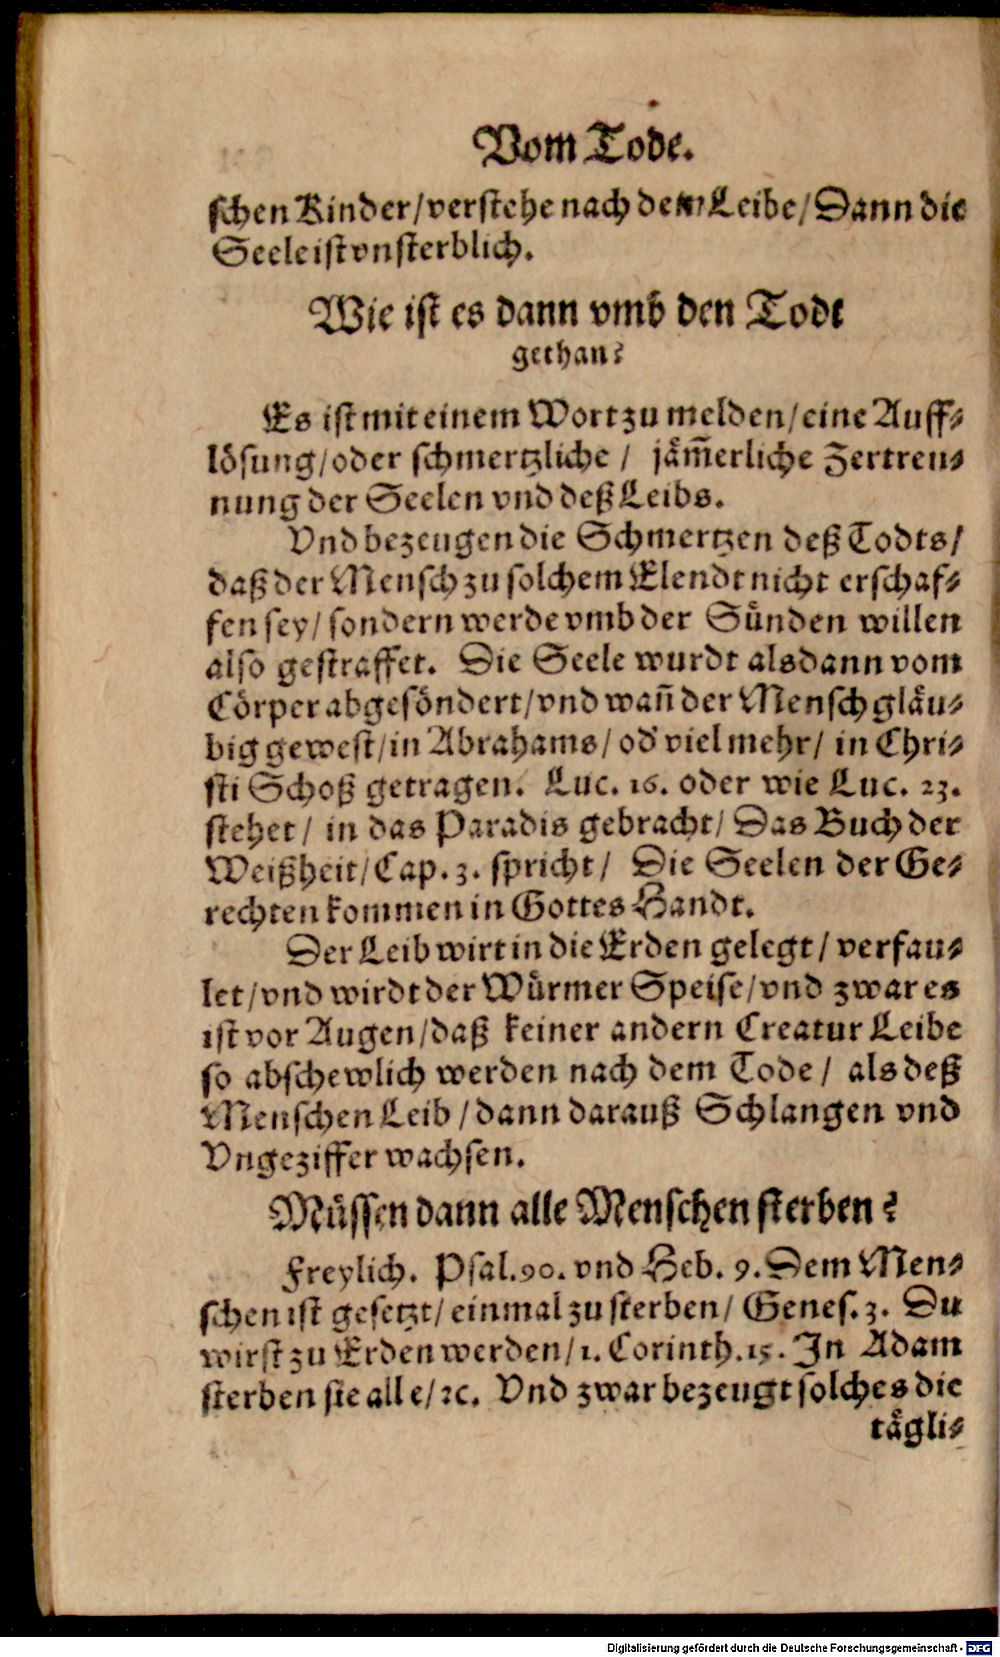 Vom Tode.
schen Kinder/verstehe nach dem Leibe/Dann die
Seele ist vnsterblich.
Wie ist es dann vmb den Todt
gethan?
Es ist mit einem Wort zu melden/eine Auff⸗
lösung/oder schmertzliche / jäm̃erliche Zertren⸗
nung der Seelen vnd deß Leibs.
Vnd bezeugen die Schmertzen deß Todts/
daß der Mensch zu solchem Elendt nicht erschaf⸗
fen sey/sondern werde vmb der Sünden willen
also gestraffet. Die Seele wurdt alsdann vom
Cörper abgesöndert/vnd wañ der Mensch gläu⸗
big gewest/in Abrahams/od' viel mehr/ in Chri⸗
sti Schoß getragen. Luc. 16. oder wie Luc. 23.
stehet/ in das Paradis gebracht/ Das Buch der
Weißheit/Cap. 3. spricht/ Die Seelen der Ge⸗
rechten kommen in Gottes Handt.
Der Leib wirt in die Erden gelegt/ verfau⸗
let/vnd wirdt der Würmer Speise/vnd zwar es
ist vor Augen/daß keiner andern Creatur Leibe
so abschewlich werden nach dem Tode/ als deß
Menschen Leib/dann darauß Schlangen vnd
Vngeziffer wachsen.
Müssen dann alle Menschen sterben?
Freylich. Psal.90. vnd Heb. 9. Dem Men⸗
schen ist gesetzt/einmal zu sterben/ Genes. 3. Du
wirst zu Erden werden/1. Corinth.15. In Adam
sterben sie alle/ꝛc. Vnd zwar bezeugt solches die
tägli⸗
Digitalisierung gefördert durch die Deutsche Forschungsgemeinschaft - DFG